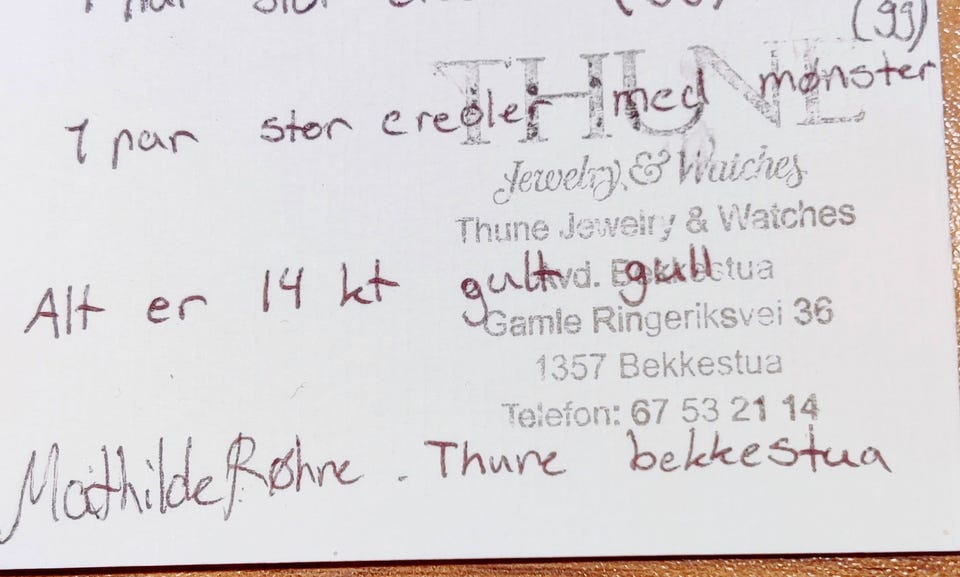 1 par stor
(99)
THUNE
1 par stor creoler med mønster
Jewelry & Watches
Thune Jewelry & Watches
avd. Bekkestua
Alt er 14 kt gult gull
Gamle Ringeriksvei 36
1357 Bekkestua
Telefon: 67 53 21 14
Mathilde Røhne. Thune bekkestua